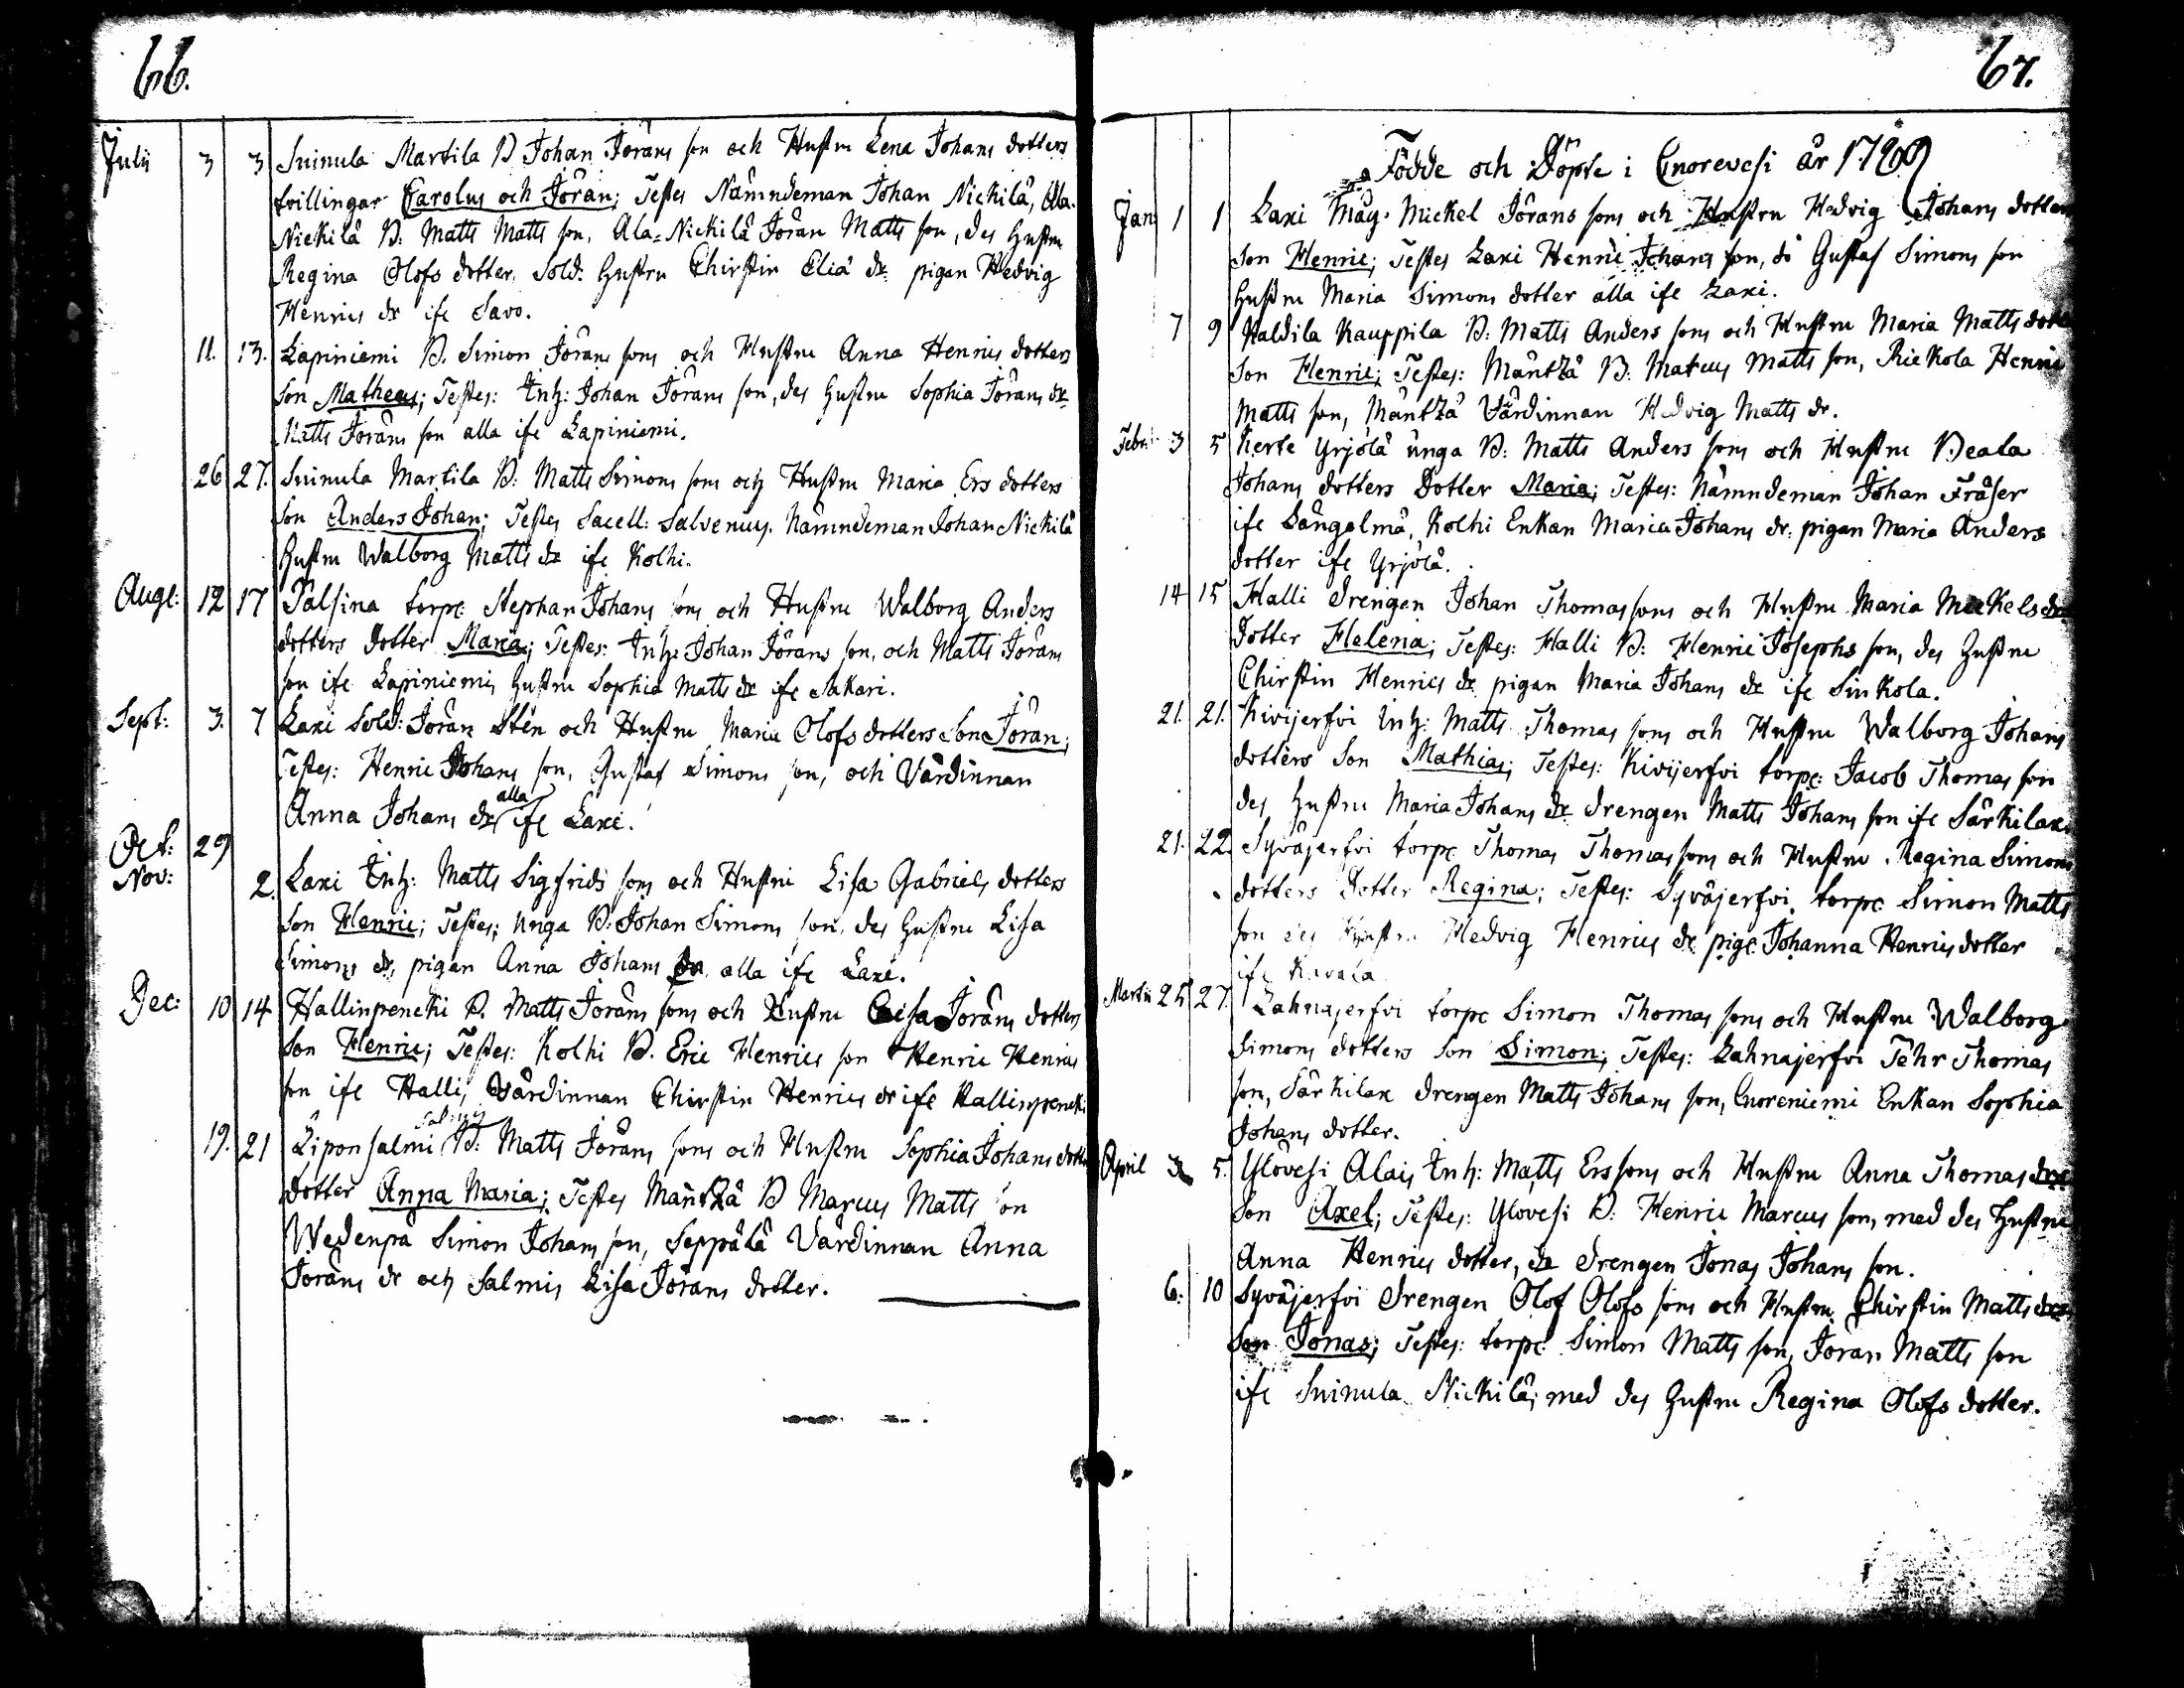 66.
Julii 3 3 Suinula Martila B Johan Jörans son och Hustru Lena Johans dotters
tvillingar Carolus och Jöran; Testes Nämndeman Johan Nickilä, Ala-
Nickilä B: Matts Matts son, Ala=Nickilä Jöran Matts son, des hustru
Regina Olofs dotter. Sold: hustru Chirstin Eliä dr pigan Hedvig
Henrics dr ife Savo.
11. 13. Lapiniemi B. Simon Jörans sons och Hustru Anna Henrics dotters
son Matheus; Testes: Inh: Johan Jörans son, des hustru Sophia Jörans dr
Matts Jörans son alla ife Lapiniemi.
26 27. Suinula Martila B: Matts Simons sons och Hustru Maria Ers dotters
son Anders Johan; Testes Sacell: Salvenius. Nämndeman Johan Nickilä
hustru Walborg Matts dr ife Kolhi.
Augt: 12 17 Palsina torpe Stephan Johans sons och Hustru Walborg Anders
dotters dotter Maria; Testes: Inh: Johan Jörans son, och Matts Jörans
son ife Lapiniemi, hustru Sophia Matts dr ife Sakari.
Sept: 3. 7 Laxi Sold: Jöran Sten och Hustru Maria Olofs dotters Son Jöran;
Testes: Henric Johans son, Gustaf Simons son, och Värdinnan
Anna Johans dr alla ife Laxi.
Oct: 29
Nov: 2. Laxi Inh: Matts Sigfrids sons och Hustru Lisa Gabriels dotters
son Henric; Testes; Unga B: Johan Simons son, des hustru Lisa
Simons dr, pigan Anna Johans dr alla ife Laxi.
Dec: 10 14 Hallinpencki B. Matts Jörans sons och Hustru Caisa Jörans dotters
Son Henric; Testes: Kolhi B. Eric Henrics son Henric Henrics
son ife Halli, Värdinnan Chirstin Henrics dr ife Hallinpencki
19. 21 Liponsalmi Salmis B: Matts Jörans sons och Hustru Sophia Johans dotters
dotter Anna Maria; Testes Mäntzä B Marcus Matts son
Wedenpä Simon Johans son, Seppälä Värdinnan Anna
Jörans dr och Salmis Lisa Jörans dotter.
67.
Födde och Döpte i Enorevesi år
Jan 1 1 Laxi Mäg. Mickel Jörans sons och Hustru Hedvig Johans dotters
son Henric; Testes Laxi Henric Johans son, do Gustaf Simons son
hustru Maria Simons dotter alla ife Laxi.
7 9 Haldila Kauppila B: Matts Anders sons och Hustru Maria Matts dotters
son Henric; Testes: Mäntzä B: Marcus Matts son, Rickola Henric
Matts son, Mäntzä Värdinnan Hedvig Matts dr.
Febr: 3 5 Kerte Yrjölä unga B: Matts Anders sons och Hustru Beata
Johans dotters Dotter Maria; Testes: Nämndeman Johan Fräser
ife Längelmä, Kolhi Enkan Maria Johans dr. pigan Maria Anders
dotter ife Yrjölä.
14 15 Halli drengen Johan Thomas sons och Hustru Maria Mickels drs
Dotter Helena; Testes: Halli B: Henric Josephs son, des hustru
Chirstin Henrics dr pigan Maria Johans dr ife Sinkola.
21. 21. Kivijerfvi Inh: Matts Thomas sons och Hustru Walborg Johans
dotters Son Mathias; Testes: Kivijerfvi torpe: Jacob Thomas son
des hustru Maria Johans dr drengen Matts Johans son ife Särkilax.
21. 22. Syväjerfvi torpe Thomas Thomas sons och Hustru Regina Simons
dotters Dotter Regina; Testes: Syväjerfvi torpe Simon Matts
son des Hustru Hedvig Henrics dr pige Johanna Henrics dotter
ife
Martii 25 27. Lahnajerfvi torpe Simon Thomas sons och Hustru Walborg
Simons dotters son Simon; Testes: Lahnajerfvi Pehr Thomas
son, Särkilax drengen Matts Johans son, Enoreniemi Enkan Sophia
Johans dotter.
April 3 5. Ylövesi Alais Inh: Matts Ers sons och Hustru Anna Thomas drs
son Axel; Testes: Ylövesi B: Henric Marcus son, med des hustru
Anna Henrics dotter, drengen Jonas Johans son.
6: 10 Syväjerfvi drengen Olof Olofs sons och Hustru Chirstin Matts drs
Son Jonas; Testes: torpe Simon Matts son, Jöran Matts son
ife Suinula Nickilä; med des hustru Regina Olofs dotter.